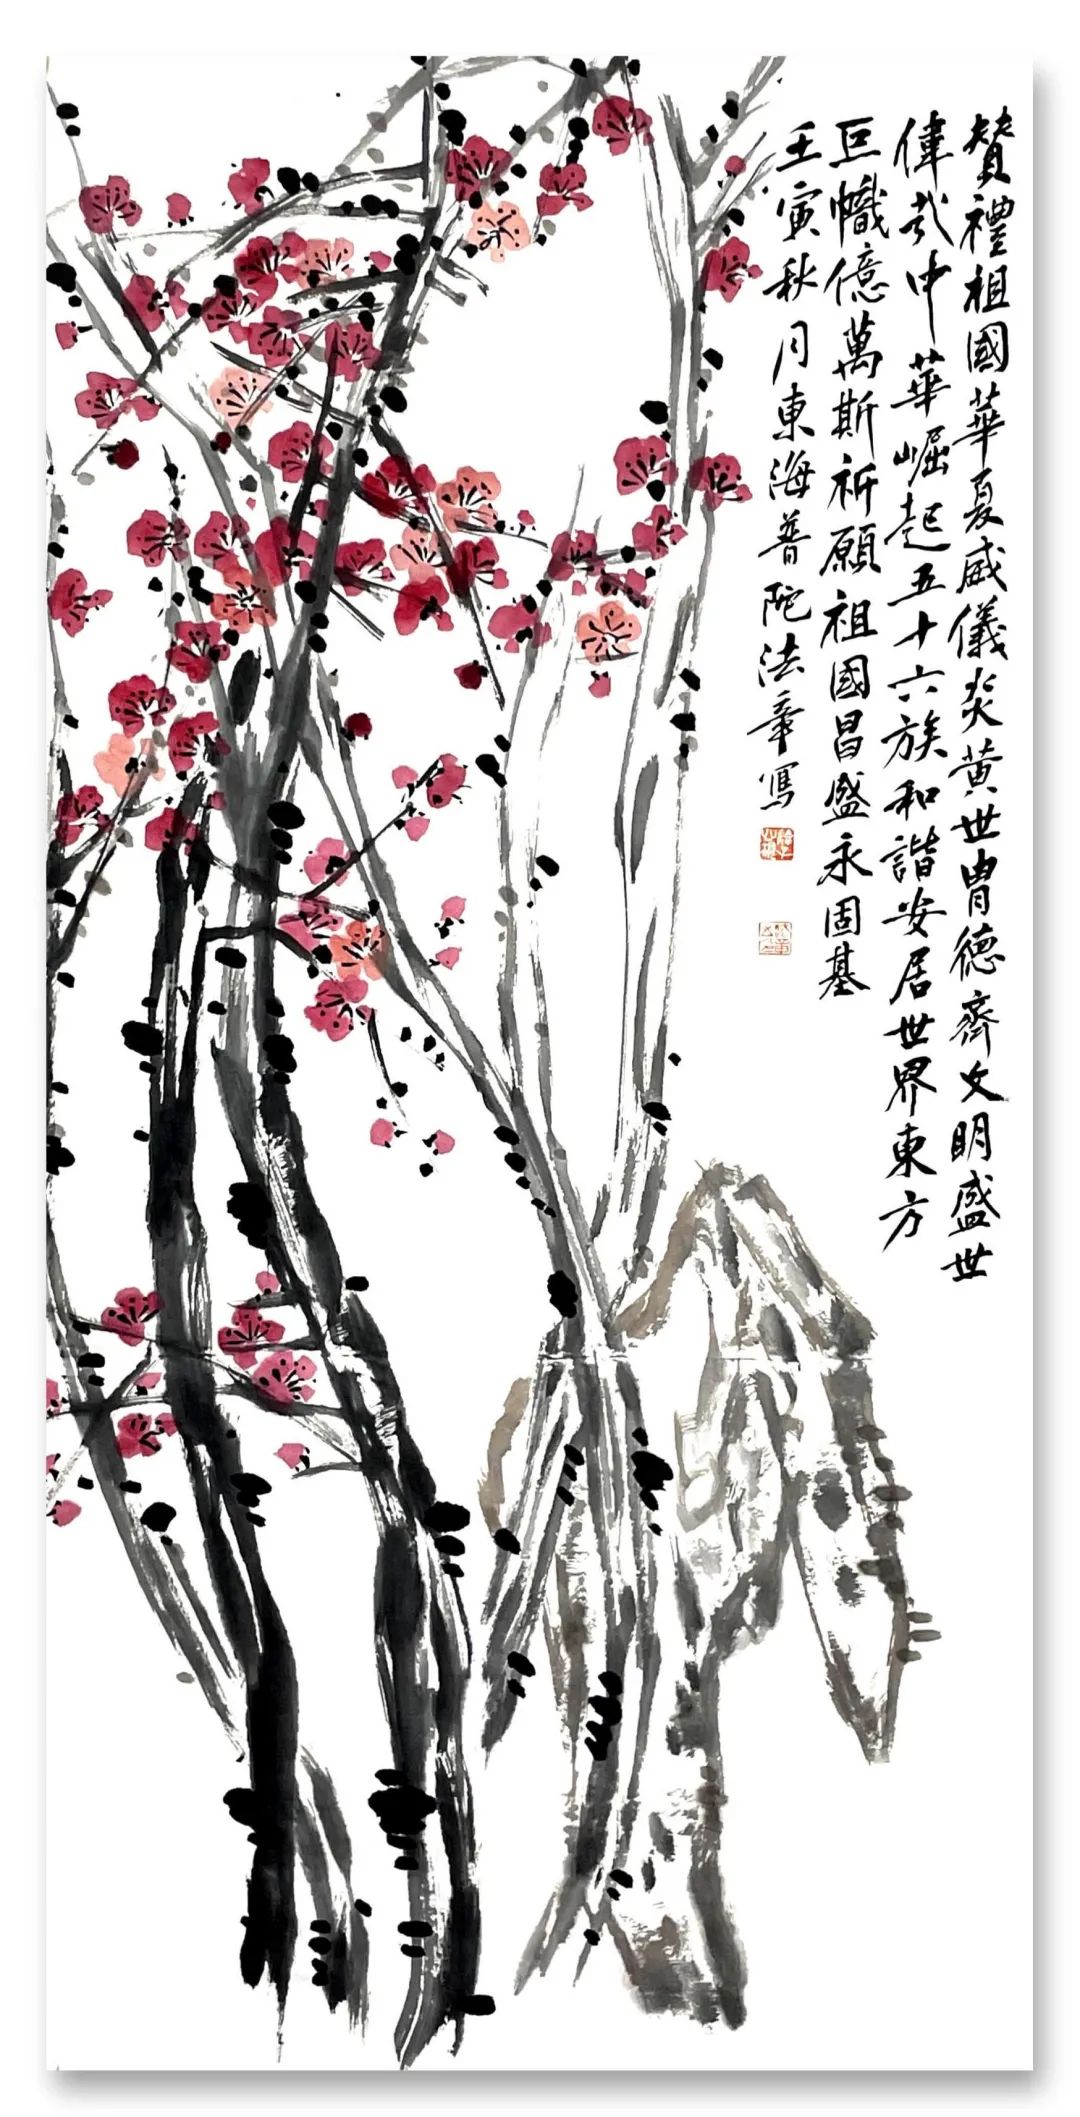 贊禮祖國華夏威儀炎黃世胄德齊文明盛世
偉哉中華崛起五十六族和諧安居世界東方
巨幟億萬斯祈願祖國昌盛永固基
壬寅秋月東海普陀法章寫